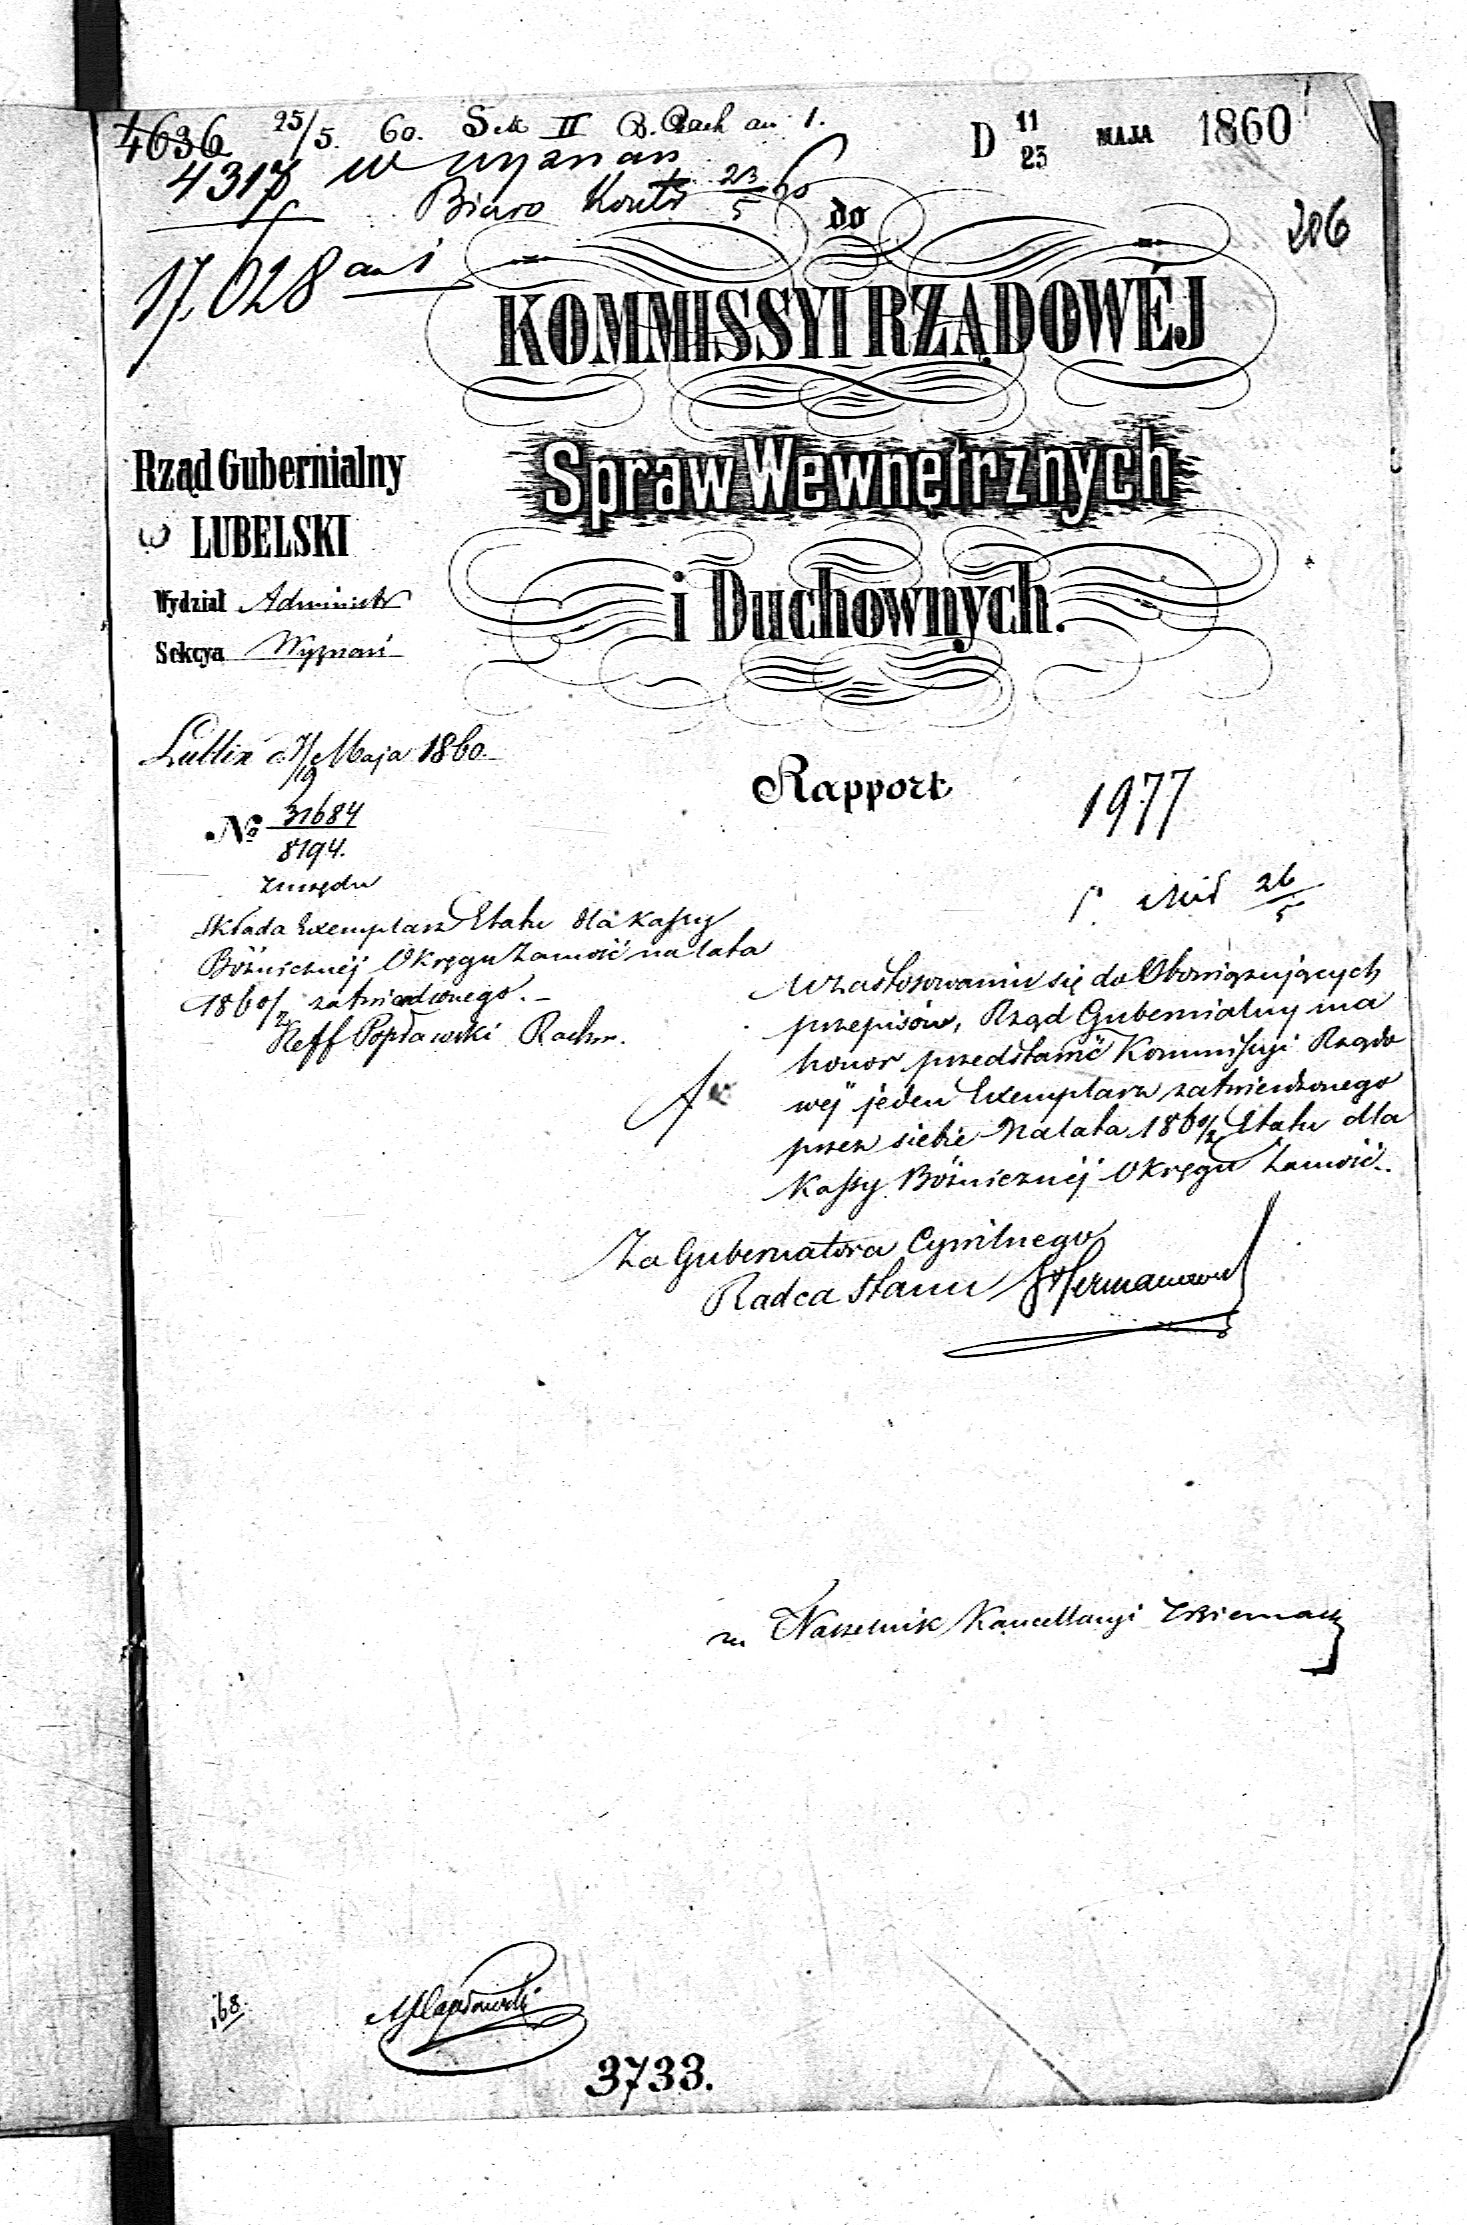 4636 25/5 60. Sek II B. Rach an 1.
D 11/23 MAJA 1860
4317 W Wyznań
Biuro Kontr 23/5 60
206
17,028 an 1
do
KOMMISSYI RZĄDOWÉJ
Spraw Wewnętrznych
i Duchownych.
Rząd Gubernialny
LUBELSKI
Wydział Administr
Sekcya Wyznań
Lublin d 7/19 Maja 1860
№ 31684/8194.
z urzędu
Składa Exemplarz Etatu dla Kassy
Bóżnicznéj Okręgu Zamość na lata
1860/2 zatwierdzonego. –
Reff Popławski Rachm.
Rapport
1977
26/5
W zastosowaniu się do Obowiązujących
przepisów, Rząd Gubernialny ma
honor przedstawić Kommissyi Rządo
wéj jeden Exemplarz zatwierdzonego
przez siebie na lata 1860/2 Etatu dla
Kassy Bóżnicznéj Okręgu Zamość.
Za Gubernatora Cywilnego
Radca Stanu
Naczelnik Kancellaryi
168.
3733.